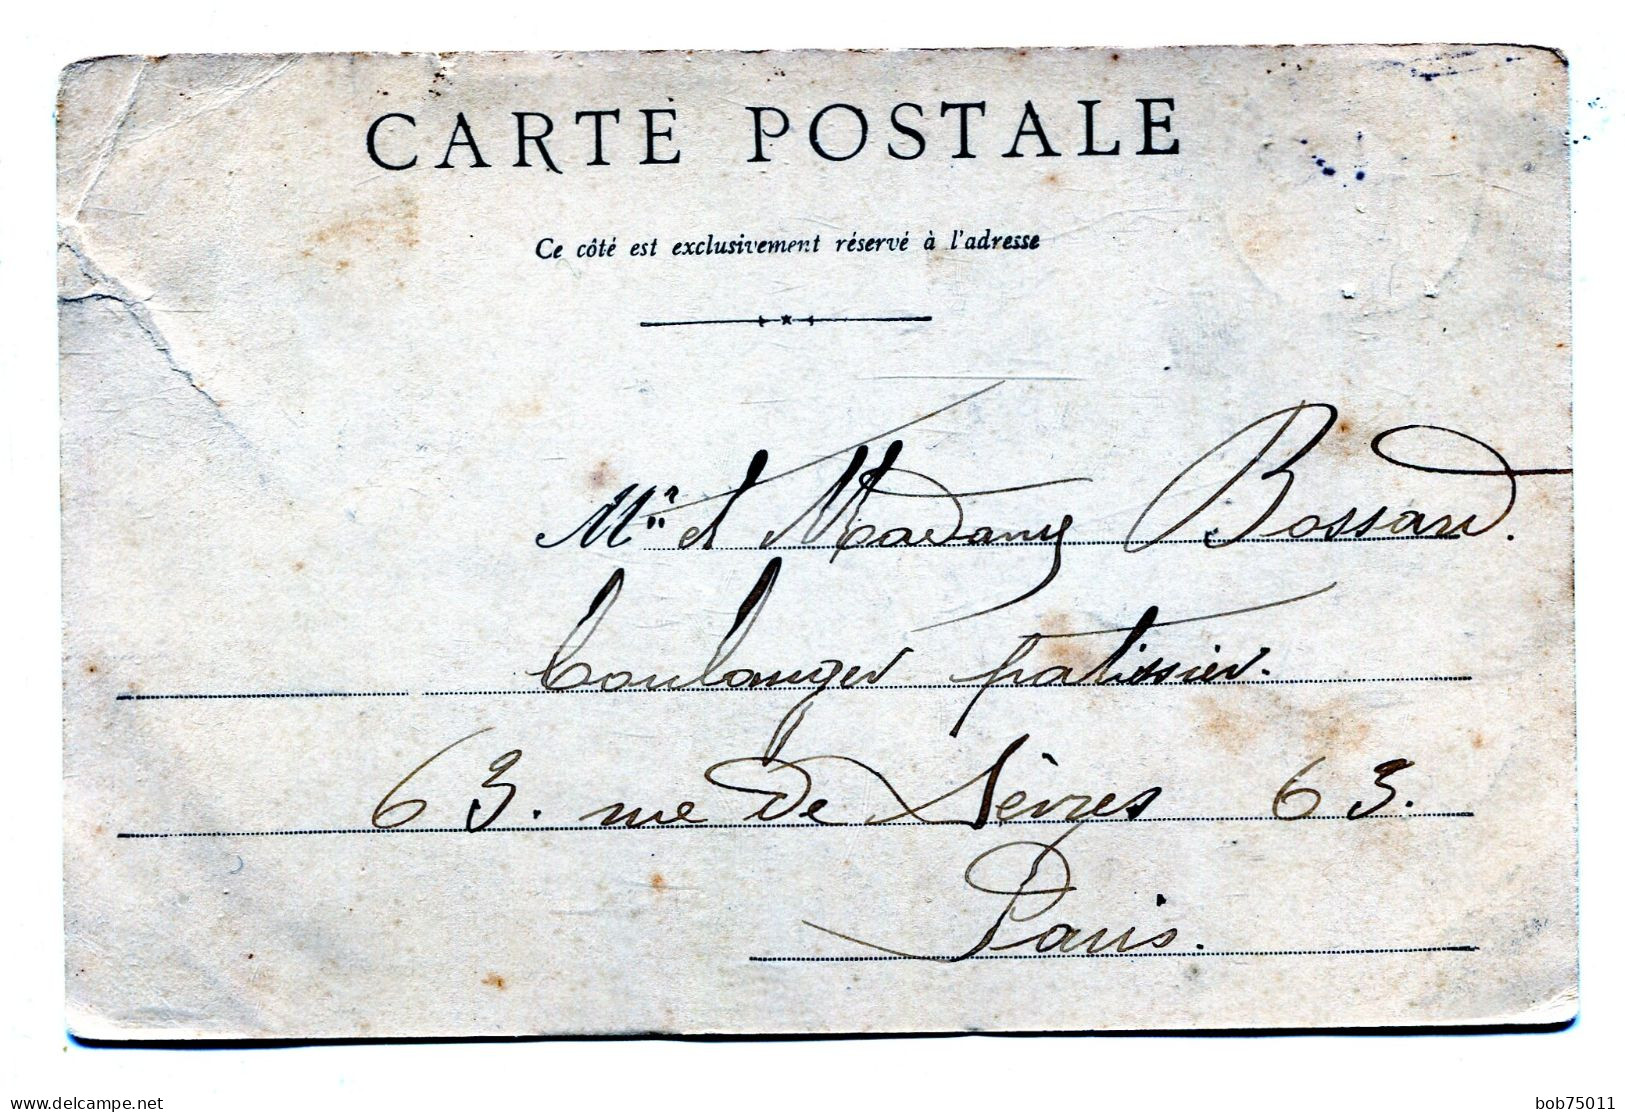 CARTE POSTALE
Ce côté est exclusivement réservé à l'adresse
Mr et Madame Bossard.
boulanger patissier.
63. rue de Sèvres 63.
Paris.
delcampe.net
bob75011